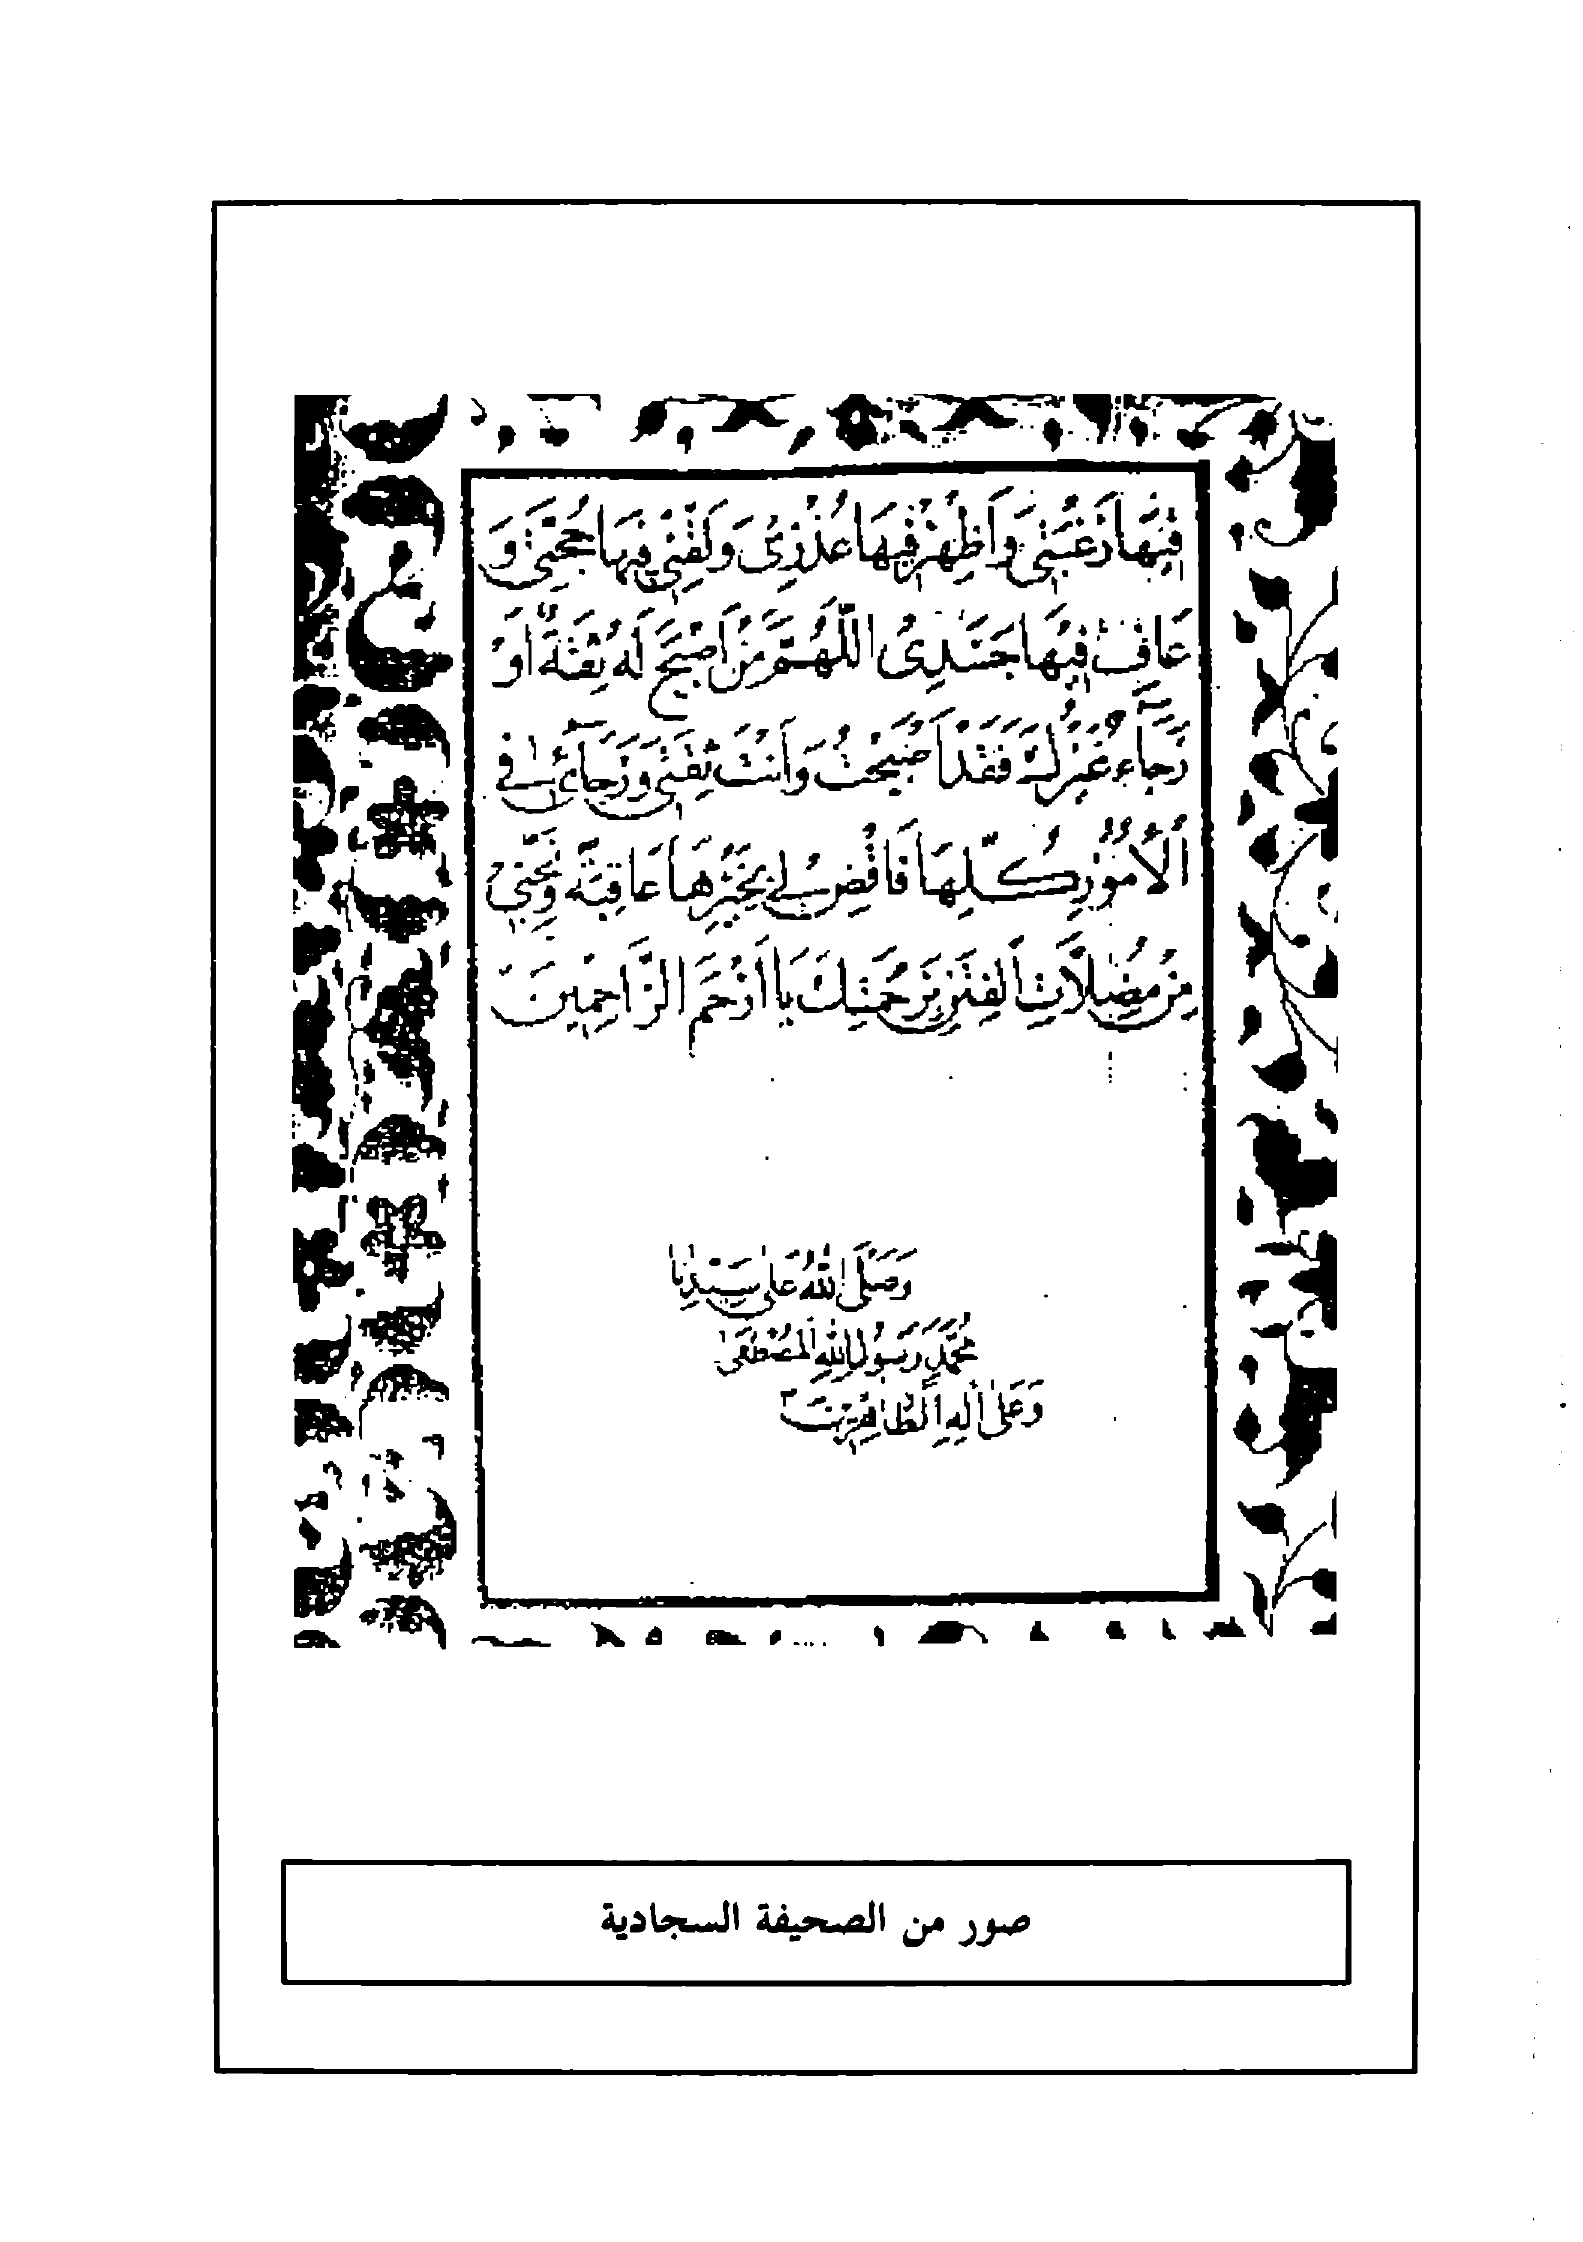 فِيهَا رَغْبَتِي وَأَظْهِرْ فِيهَا عُذْرِي وَلَقِّنِي فِيهَا حُجَّتِي وَ
عَافِ فِيهَا جَسَدِي اللّٰهُمَّ مَنْ أَصْبَحَ لَهُ ثِقَةٌ أَوْ
رَجَاءٌ غَيْرُكَ فَقَدْ أَصْبَحْتُ وَأَنْتَ ثِقَتِي وَرَجَائِي فِي
الْأُمُورِ كُلِّهَا فَاقْضِ لِي بِخَيْرِهَا عَاقِبَةً وَنَجِّنِي
مِنْ مُضِلَّاتِ الْفِتَنِ بِرَحْمَتِكَ يَا أَرْحَمَ الرَّاحِمِينَ
وَصَلَّى اللهُ عَلَى سَيِّدِنَا
مُحَمَّدٍ رَسُولِ اللهِ الْمُصْطَفَى
وَعَلَى آلِهِ الطَّاهِرِينَ
صور من الصحيفة السجادية